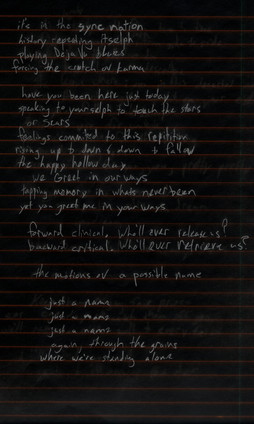 it's in the sync nation
history repeating itselph
playing Deja Vu blues
forcing the crutch ov karma
have you been here just today
speaking to yourselph to touch the stars
or scars
feelings commited to this repititive
rising up to down & down to follow
the happy hollow day
we Greet in our ways
tapping memory in whats never been
yet you greet me in your ways
forward clinical, who'll ever release us?
backward critical, who'll ever retrieve us?
the motions ov a possible name
just a name
just a name
just a name
again, through the grains
where we're standing alone